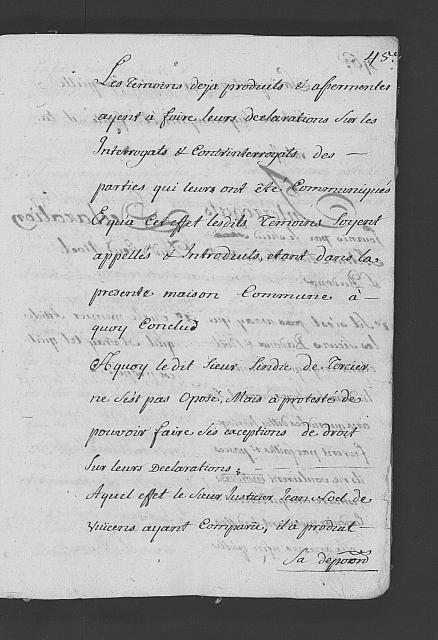 45.
Les Temoins deja produits & assermentes
ayent à faire leurs declarations sur les
Interrogats & Contrinterrogats des —
parties qui leurs ont été Communiqués
Et qua Cet effet lesdits Temoins soyent
appellés & Introduits, etant dans la
presente maison Commune à —
quoy Conclud
A quoy le dit Sieur Sindic de Tercier
ne s'est pas Oposé, Mais à protesté de
pouvoir faire ses exceptions de droit
sur leurs Declarations;
A quel effet le Sieur Justicier Jean Noel de
Vuicens ayant Comparû, il à produit —
Sa deposon